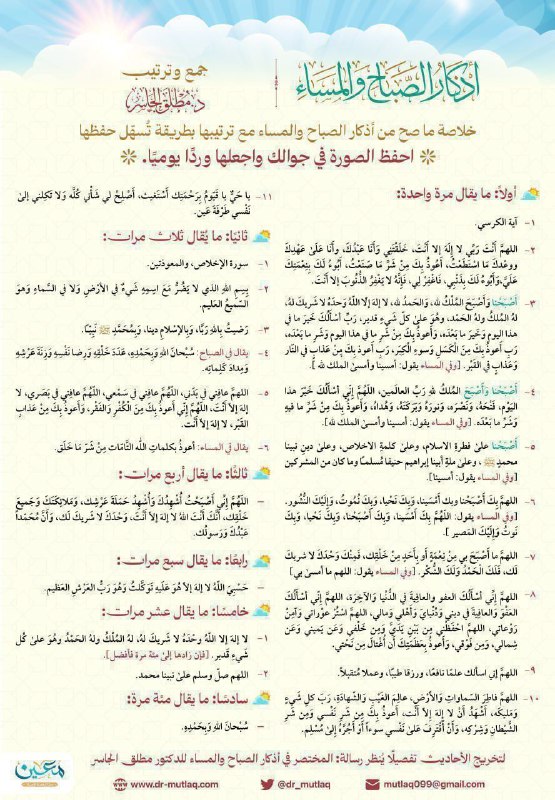 أذكار الصباح والمساء
جمع وترتيب
د. مطلق الجاسر
خلاصة ما صح من أذكار الصباح والمساء مع ترتيبها بطريقة تُسهّل حفظها
احفظ الصورة في جوالك واجعلها وردًا يوميًا.
أولاً: ما يقال مرة واحدة:
١- آية الكرسي.
٢- اللهمَّ أَنْتَ رَبِّي لا إِلَهَ إِلا أَنْتَ، خَلَقْتَنِي وَأَنَا عَبْدُكَ، وأنا عَلَىٰ عَهْدِكَ
ووعْدِكَ مَا اسْتَطَعْتُ، أَعُوذُ بِكَ مِنْ شَرِّ مَا صَنَعْتُ، أَبُوءُ لَكَ بِنِعْمَتِكَ
عَلَيَّ، وَأَبُوءُ لَكَ بِذَنْبِي، فَاغْفِرْ لِي، فَإِنَّهُ لَا يَغْفِرُ الذُّنُوبَ إِلَّا أَنْتَ.
٣- أَصْبَحْنَا وَأَصْبَحَ المُلْكُ لله، والحَمدُ لله، لا إلهَ إلَّا اللهُ وَحْدَهُ لا شَرِيكَ لهُ،
لهُ المُلكُ ولهُ الحَمْد، وهُوَ عَلىٰ كلِّ شَيْءٍ قدير، ربِّ أسْأَلُكَ خَيْرَ ما في
هذا اليوم وَخَيرَ ما بَعْدَه، وَأَعوذُ بِكَ مِنْ شَرِّ ما في هذا اليوم وَشَرِّ ما بَعْدَه،
رَبِّ أَعوذُ بِكَ مِنَ الكَسَلِ وَسوءِ الكِبَر، رَبِّ أعوذ بكَ مِنْ عَذابٍ في النّارِ
وَعَذابٍ في القَبْرِ. [وفي المساء يقول: أمسينا وأمسىٰ الملك لله].
٤- أَصْبَحْنا وَأَصْبَحَ المُلكُ للهِ رَبِّ العالَمين، اللهمَّ إِنِّي أسْأَلُكَ خَيْرَ هذا
اليَوْم، فَتْحَهُ، وَنَصْرَه، وَنورَهُ وَبَرَكَتَه، وَهُداهُ، وَأَعوذُ بِكَ مِنْ شَرِّ ما فيهِ
وَشَرِّ ما بَعْدَه. [وفي المساء يقول: أمسينا وأمسىٰ الملك لله].
٥- أصْبَحْنا علىٰ فطرةِ الاسلام، وعلىٰ كلمةِ الإخلاص، وعلىٰ دينِ نبينا
محمدٍ ﷺ، وعلىٰ ملةِ أبينا إبراهيم حنيفًا مُسلماً وما كان من المشركين
[وفي المساء يقول: أمسينا].
٦- اللهمَّ بكَ أصْبَحْنا وبك أمْسَينا، وَبِكَ نَحْيَا، وَبِكَ نَمُوتُ، وإِلَيْكَ النُّشُور.
[وفي المساء يقول: اللَّهُمَّ بِكَ أَمْسَيْنا، وَبِكَ أَصْبَحْنا، وَبِكَ نَحْيا، وَبِكَ
نَموتُ وَإِلَيْكَ المَصير].
٧- اللهمَّ ما أَصْبَحَ بي مِنْ نِعْمَةٍ أو بأَحَدٍ مِنْ خَلْقِك، فَمِنْكَ وَحْدَكَ لا شريكَ
لك، فَلَكَ الْحَمْدُ وَلَكَ الشُّكْر. [وفي المساء يقول: اللهم ما أمسىٰ بي].
٨- اللهمَّ إنِّي أسْأَلُكَ العفو والعافِيةَ في الدُّنْيا وَالآخِرَة، اللهمَّ إِنِّي أسْأَلُكَ
العَفْوَ وَالعافِيةَ في ديني وَدُنْيايَ وَأهْلي وَمالي، اللهم اسْتُرْ عوراتي وَآمِنْ
رَوْعاتي، اللهمَّ احْفَظْني مِن بَينِ يَدَيَّ وَمِن خَلْفي وَعَن يَميني وَعَن
شِمالي، وَمِن فَوْقي، وَأَعوذُ بِعَظَمَتِكَ أَن أُغْتالَ مِن تَحْتي.
٩- اللهمَّ إني اسألك علمًا نافعًا، ورزقًا طيبًا، وعملاً متقبلاً.
١٠- اللهمَّ فاطِرَ السَّماواتِ وَالأرْضِ، عالِمَ الغَيْبِ والشَّهادَةِ، رَبَّ كلِّ شَيءٍ
وَمَليكَه، أَشْهَدُ أَنْ لا إِلهَ إِلاّ أَنت، أَعوذُ بِكَ مِن شَرِّ نَفْسي وَمِن شَرِّ
الشَّيْطانِ وَشِرْكِه، وَأنْ أَقْتَرِفَ عَلىٰ نَفْسي سوءاً أَوْ أَجُرَّهُ إِلىٰ مُسْلِم.
١١- يا حَيُّ يا قَيُّومُ بِرَحْمَتِكَ أَسْتَغيث، أَصْلِحْ لي شَأْني كُلَّه وَلا تَكِلني إلى
نَفْسي طَرْفَةَ عَين.
ثانيًا: ما يُقال ثلاث مرات:
١- سورة الإخلاص، والمعوذتين.
٢- بِسمِ اللهِ الذي لا يَضُرُّ مَعَ اسمِهِ شَيءٌ في الأرْضِ وَلا في السَّماءِ وَهوَ
السّميعُ العَليم.
٣- رَضيتُ بِاللهِ رَبًّا، وَبِالإسْلامِ دينا، وبِمُحَمَّدٍ ﷺ نَبِيًّا.
٤- يقال في الصباح: سُبْحانَ اللهِ وَبِحَمْدِهِ، عَدَدَ خَلْقِهِ ورِضا نَفْسِهِ وَزِنَةَ عَرْشِهِ
وَمِدادَ كَلِماتِه.
٥- اللهمَّ عافِني في بَدَني، اللَّهُمَّ عافِني في سَمْعي، اللهمَّ عافِني في بَصَري، لا
إلهَ إلاّ أَنْت، اللَّهُمَّ إِنِّي أَعوذُ بِكَ مِنَ الْكُفر وَالفَقْر، وَأَعوذُ بِكَ مِنْ عَذابِ
القَبْر، لا إلهَ إلاّ أَنْتَ.
٦- يقال في المساء: أعوذُ بكلماتِ الله التَّامَات مِنْ شَرِّ مَا خَلَق.
ثالثًا: ما يقال أربع مرات:
– اللهمَّ إِنِّي أَصْبَحْتُ أُشْهِدُكَ وَأُشْهِدُ حَمَلَةَ عَرْشِك، وَمَلائِكَتَكَ وَجَميعَ
خَلْقِك، أَنَّكَ أَنْتَ اللهُ لا إلهَ إلاّ أَنْتَ، وَحْدَكَ لا شَريكَ لَك، وَأَنَّ مُحَمَّداً
عَبْدُكَ وَرَسولُك.
رابعًا: ما يقال سبع مرات:
– حَسْبِيَ اللّهُ لا إلهَ إلاّ هُوَ عَلَيهِ تَوَكَّلتُ وَهُوَ رَبُّ العَرْشِ العَظيم.
خامسًا: ما يقال عشر مرات:
١- لا إلهَ إلاّ اللهُ وحْدَهُ لا شَريكَ لهُ، لهُ المُلْكُ ولهُ الحَمْدُ وهُوَ علىٰ كُلِّ
شَيءٍ قدير. [فإن زادها إلىٰ مئة مرة فأفضل].
٢- اللهم صلّ وسلم علىٰ نبينا محمد.
سادسًا: ما يقال مئة مرة:
– سُبحْانَ اللهِ وَبِحَمْدِهِ.
لتخريج الأحاديث تفصيلًا يُنظر رسالة: المختصر في أذكار الصباح والمساء للدكتور مطلق الجاسر
www.dr-mutlaq.com
@dr_mutlaq
mutlaq099@gmail.com
معين